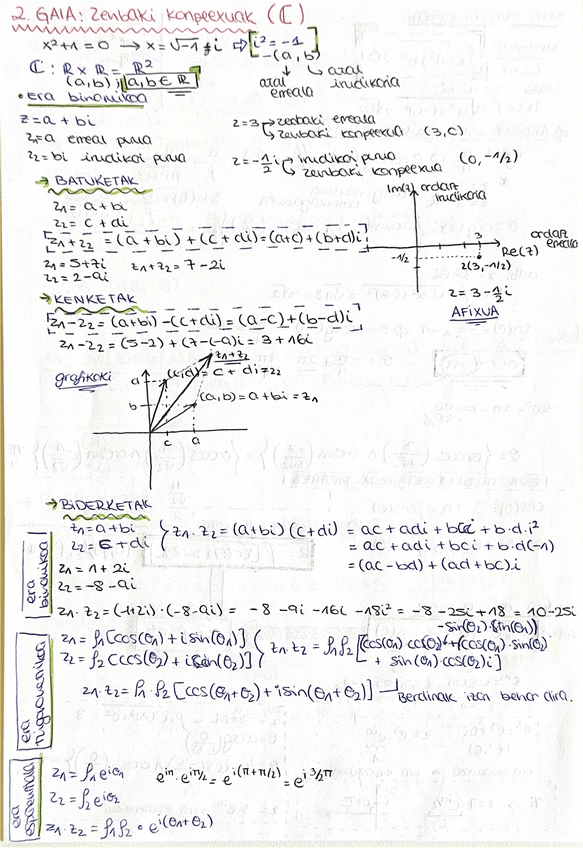 2. GAIA: Zenbaki konplexuak (ℂ)
x²+1=0 → x=√-1 ≠ i ⇒ i² = -1
ℂ: ℝ x ℝ = ℝ²
(a,b) ; a,b ∈ ℝ
(a, b)
azal erreala
azal irudikaria
• era binomikoa
z = a + bi
z₁=a erreal purua
z₂=bi irudikari purua
z=3 → zenbaki erreala
→ zenbaki konplexua (3,0)
z=-1/2 i → irudikari purua
→ zenbaki konplexua (0,-1/2)
→ BATUKETAK
z₁ = a+bi
z₂ = c+di
z₁+z₂ = (a+bi) + (c+di) = (a+c) + (b+d)i
z₁ = 5+7i z₁+z₂ = 7-2i
z₂ = 2-9i
Im(z) ardatz irudikaria
3
ardatz erreala
Re(z)
-1/2
z(3,-1/2)
z = 3-1/2 i
AFIXUA
→ KENKETAK
z₁-z₂ = (a+bi) - (c+di) = (a-c) + (b-d)i
z₁-z₂ = (5-2) + (7-(-9))i = 3 + 16i
grafikoki
z₁+z₂
a
(c,d) = c+di = z₂
b
(a,b) = a+bi = z₁
c a
→ BIDERKETAK
era binomikoa
z₁ = a+bi
z₂ = c+di
z₁·z₂ = (a+bi)(c+di) = ac + adi + bci + b·d·i²
= ac + adi + bci + b·d(-1)
= (ac-bd) + (ad+bc)·i
z₁ = 1+2i
z₂ = -8-9i
z₁·z₂ = (1+2i)·(-8-9i) = -8 -9i -16i -18i² = -8-25i+18 = 10-25i
z₁ = ρ₁[cos(θ₁) + i sin(θ₁)]
z₂ = ρ₂[cos(θ₂) + i sin(θ₂)]
z₁·z₂ = ρ₁ρ₂[cos(θ₁)·cos(θ₂) + (cos(θ₁)·sin(θ₂)
-sin(θ₂)·sin(θ₁))
+ sin(θ₁)·cos(θ₂)i]
z₁·z₂ = ρ₁·ρ₂[cos(θ₁+θ₂) + i sin(θ₁+θ₂)] → Berdinak izan behar dira.
z₁ = ρ₁ e^iθ₁
e^iπ · e^iπ/2 = e^i(π+π/2) = e^i 3/2π
z₂ = ρ₂ e^iθ₂
z₁·z₂ = ρ₁ρ₂ · e^i(θ₁+θ₂)